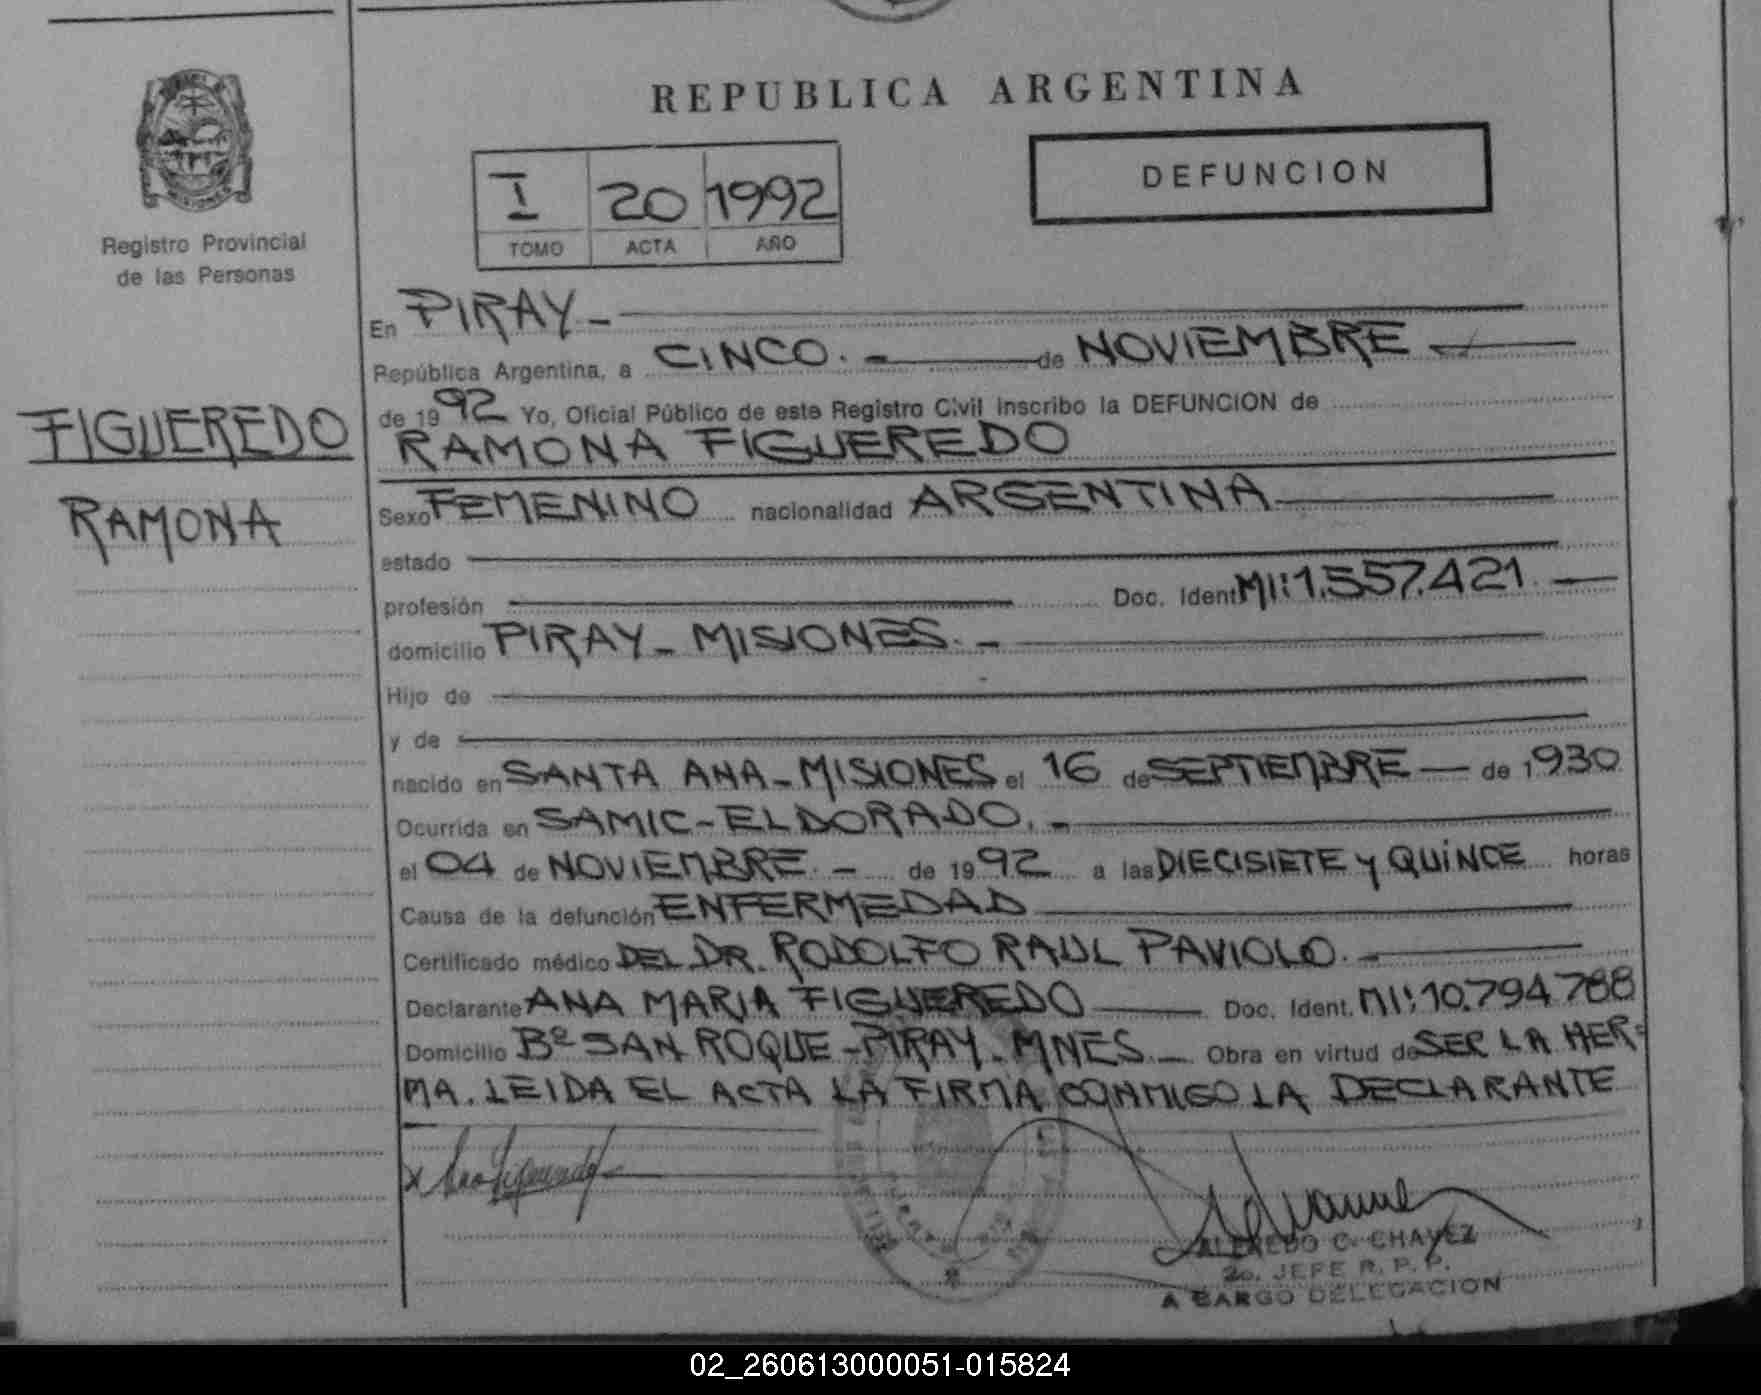 REPUBLICA ARGENTINA
MISIONES
Registro Provincial
de las Personas
I 20 1992
TOMO ACTA AÑO
DEFUNCION
FIGUEREDO
RAMONA
En PIRAY -
República Argentina, a CINCO. - de NOVIEMBRE
de 1992 Yo, Oficial Público de este Registro Civil inscribo la DEFUNCION de
RAMONA FIGUEREDO
Sexo FEMENINO nacionalidad ARGENTINA
estado
profesión Doc. Ident MI: 1.557.421
domicilio PIRAY - MISIONES. -
Hijo de
y de
nacido en SANTA ANA - MISIONES el 16 de SEPTIEMBRE de 1930
Ocurrida en SAMIC - ELDORADO. -
el 04 de NOVIEMBRE. - de 1992 a las DIECISIETE y QUINCE horas
Causa de la defunción ENFERMEDAD
Certificado médico DEL DR. RODOLFO RAUL PAVIOLO. -
Declarante ANA MARIA FIGUEREDO Doc. Ident. MI: 10.794.788
Domicilio Bº SAN ROQUE - PIRAY - MNES. - Obra en virtud de SER LA HER-
MA. LEIDA EL ACTA LA FIRMA CONMIGO LA DECLARANTE
x Ana Figueredo
ALFREDO C. CHAVEZ
2o. JEFE R. P. P.
A CARGO DELEGACION
02_260613000051-015824